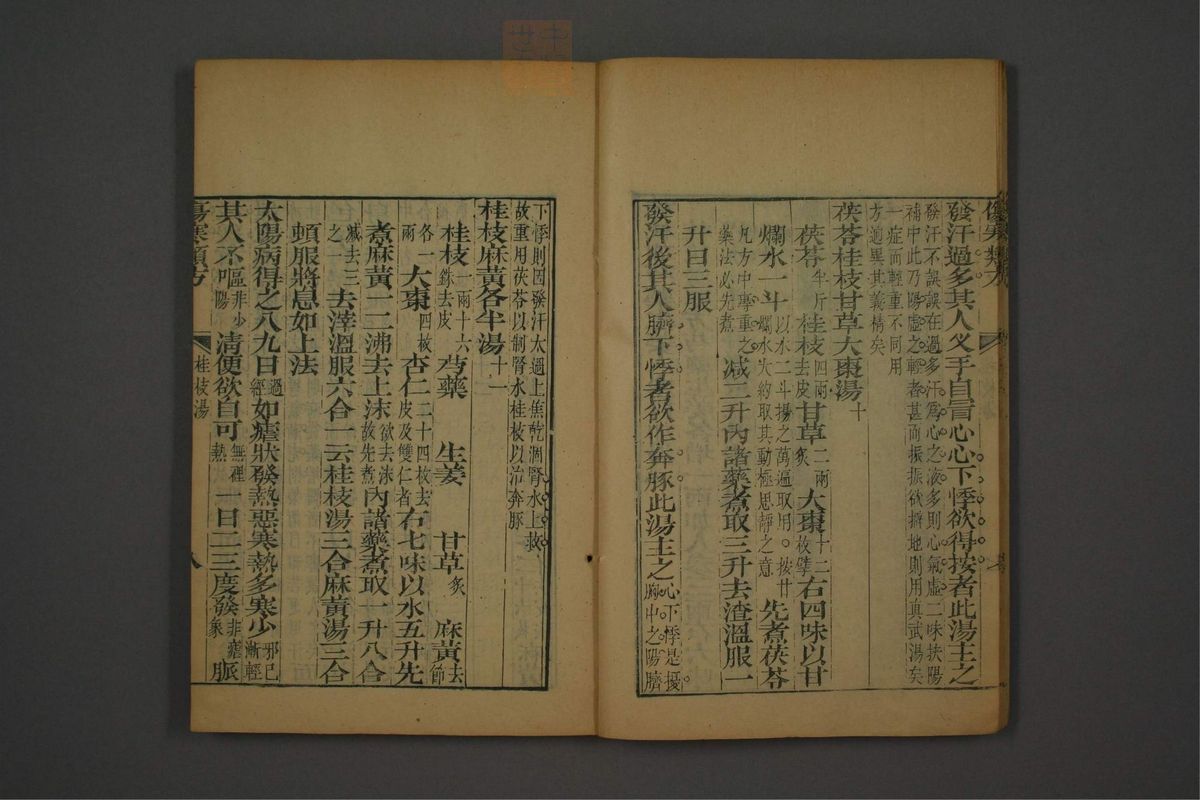 傷寒類方
發汗過多其人叉手自冒心心下悸欲得按者此湯主之
發汗不誤誤在過多汗爲心之液多則心氣虛二味扶陽
補中此乃陽虛之輕者甚而振振欲擗地則用真武湯矣
一症而輕重不同用
方逈異其義精矣
茯苓桂枝甘草大棗湯十
茯苓半斤 桂枝四兩去皮 甘草二兩炙 大棗十二枚擘 右四味以甘
爛水一斗以水二斗揚之萬遍取用。按甘爛水大約取其動極思靜之意 先煮茯苓
凡方中專重之藥法必先煮 減二升內諸藥煮取三升去渣溫服一
升日三服
發汗後其人臍下悸者欲作奔豚此湯主之心下悸是擾胸中之陽臍
下悸則因發汗太過上焦乾涸腎水上救
故重用茯苓以制腎水桂枝以治奔豚
桂枝麻黃各半湯十一
桂枝一兩十六銖去皮 芍藥 生姜 甘草炙 麻黃去節
各一兩 大棗四枚 杏仁二十四枚去皮及雙仁者 右七味以水五升先
煮麻黃一二沸去上沫欲去沫故先煮 內諸藥煮取一升八合
減去三之一 去滓溫服六合一云桂枝湯三合麻黃湯三合
頓服將息如上法
太陽病得之八九日過經 如瘧狀發熱惡寒熱多寒少邪已漸輕
其人不嘔非少陽 清便欲自可無裡熱 一日二三度發非瘧象 脈
傷寒類方 桂枝湯 八